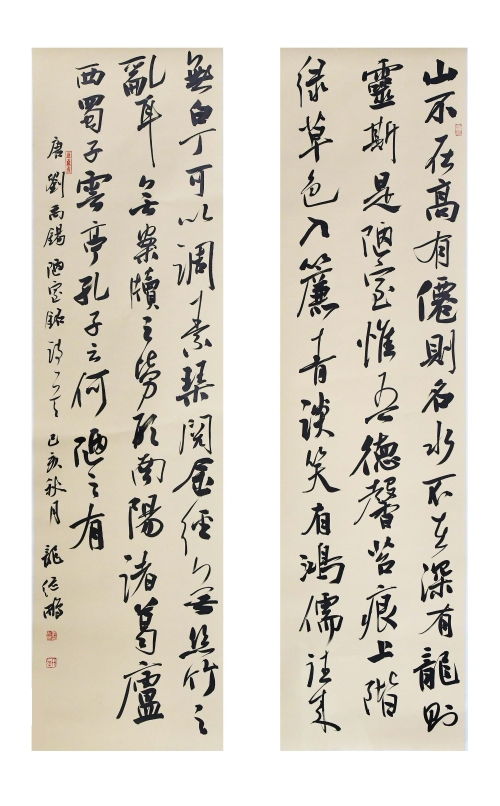 山不在高有僊則名水不在深有龍則
靈斯是陋室惟吾德馨苔痕上階
緑草色入簾青談笑有鴻儒往来
無白丁可以調素琴閱金經無丝竹之
亂耳無案牘之勞形南陽諸葛廬
西蜀子雲亭孔子云何陋之有
唐劉禹錫陋室銘詩一首 己亥秋月 龍